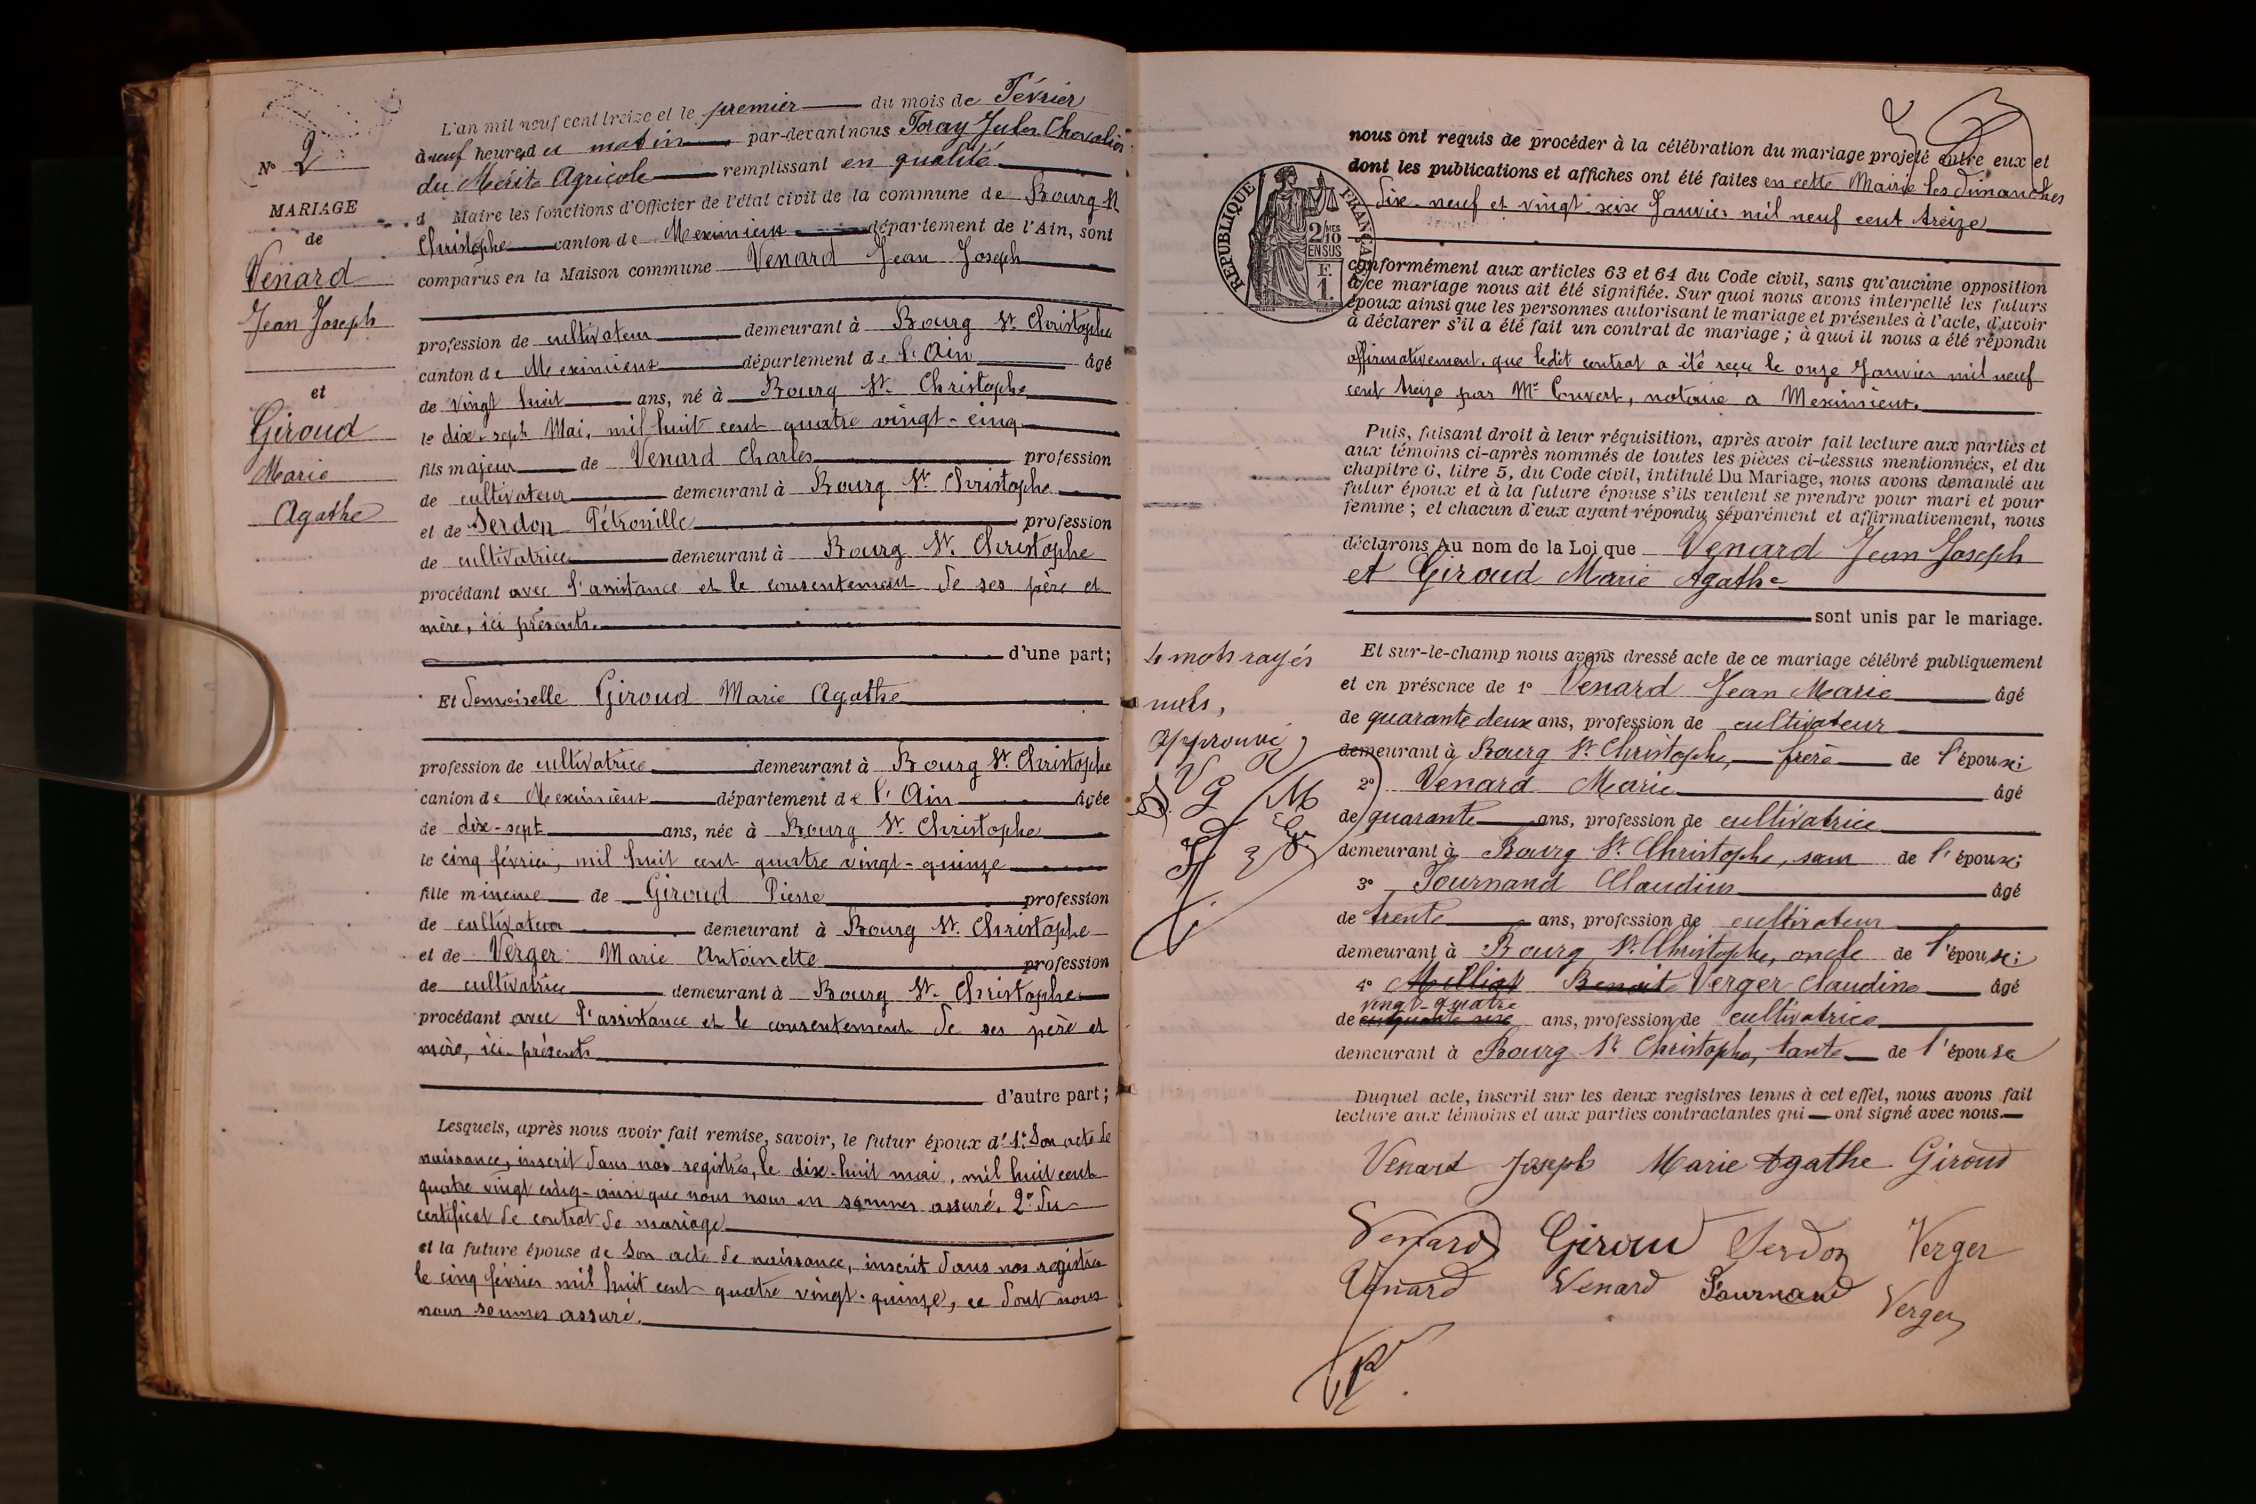 N° 2
MARIAGE
de
Venard
Jean Joseph
et
Giroud
Marie
Agathe
L'an mil neuf cent treize et le premier du mois de Février
à neuf heures du matin par-devant nous Foray Jules Chevalier
du Mérite Agricole remplissant en qualité
d Maire les fonctions d'Officier de l'état civil de la commune de Bourg St
Christophe canton de Meximieux département de l'Ain, sont
comparus en la Maison commune Venard Jean Joseph
profession de cultivateur demeurant à Bourg St Christophe
canton de Meximieux département de l'Ain âgé
de vingt huit ans, né à Bourg St Christophe
le dix-sept Mai, mil huit cent quatre vingt-cinq
fils majeur de Venard Charles profession
de cultivateur demeurant à Bourg St Christophe
et de Serdon Pétronille profession
de cultivatrice demeurant à Bourg St Christophe
procédant avec l'assistance et le consentement de ses père et
mère, ici présents.
d'une part;
Et demoiselle Giroud Marie Agathe
profession de cultivatrice demeurant à Bourg St Christophe
canton de Meximieux département de l'Ain âgée
de dix-sept ans, née à Bourg St Christophe
le cinq février, mil huit cent quatre vingt-quinze
fille mineure de Giroud Pierre profession
de cultivateur demeurant à Bourg St Christophe
et de Verger Marie Antoinette profession
de cultivatrice demeurant à Bourg St Christophe
procédant avec l'assistance et le consentement de ses père et
mère, ici présents
d'autre part;
Lesquels, après nous avoir fait remise, savoir, le futur époux d' 1° Son acte de
naissance, inscrit dans nos registres, le dix-huit mai, mil huit cent
quatre vingt cinq - ainsi que nous nous en sommes assuré. 2° du
certificat de contrat de mariage
et la future épouse de son acte de naissance, inscrit dans nos registres
le cinq février mil huit cent quatre vingt-quinze, ce dont nous
nous sommes assuré.
nous ont requis de procéder à la célébration du mariage projeté entre eux et
dont les publications et affiches ont été faites en cette Mairie les dimanches
dix-neuf et vingt-six Janvier mil neuf cent treize
RÉPUBLIQUE FRANÇAISE
2/10 MES
EN SUS
F.
1.
conformément aux articles 63 et 64 du Code civil, sans qu'aucune opposition
à ce mariage nous ait été signifiée. Sur quoi nous avons interpellé les futurs
époux ainsi que les personnes autorisant le mariage et présentes à l'acte, d'avoir
à déclarer s'il a été fait un contrat de mariage ; à quoi il nous a été répondu
affirmativement, que ledit contrat a été reçu le onze Janvier mil neuf
cent treize par Me Couvert, notaire à Meximieux.
Puis, faisant droit à leur réquisition, après avoir fait lecture aux parties et
aux témoins ci-après nommés de toutes les pièces ci-dessus mentionnées, et du
chapitre 6, titre 5, du Code civil, intitulé Du Mariage, nous avons demandé au
futur époux et à la future épouse s'ils veulent se prendre pour mari et pour
femme ; et chacun d'eux ayant répondu séparément et affirmativement, nous
déclarons Au nom de la Loi que Venard Jean Joseph
et Giroud Marie Agathe
sont unis par le mariage.
Et sur-le-champ nous avons dressé acte de ce mariage célébré publiquement
et en présence de 1° Venard Jean Marie âgé
de quarante deux ans, profession de cultivateur
demeurant à Bourg St Christophe, frère de l'époux;
2° Venard Marie âgé
de quarante ans, profession de cultivatrice
demeurant à Bourg St Christophe, sœur de l'époux;
3° Tournand Claudius âgé
de trente ans, profession de cultivateur
demeurant à Bourg St Christophe, oncle de l'épouse;
4° Milliat Benoit Verger Claudine âgé
vingt-quatre
de cinquante six ans, profession de cultivatrice
demeurant à Bourg St Christophe, tante de l'épouse
4 mots rayés
nuls,
approuvé
Duquel acte, inscrit sur les deux registres tenus à cet effet, nous avons fait
lecture aux témoins et aux parties contractantes qui ont signé avec nous.
Venard Joseph Marie Agathe Giroud
Venard Giroud Serdon Verger
Venard Venard Tournand Verger